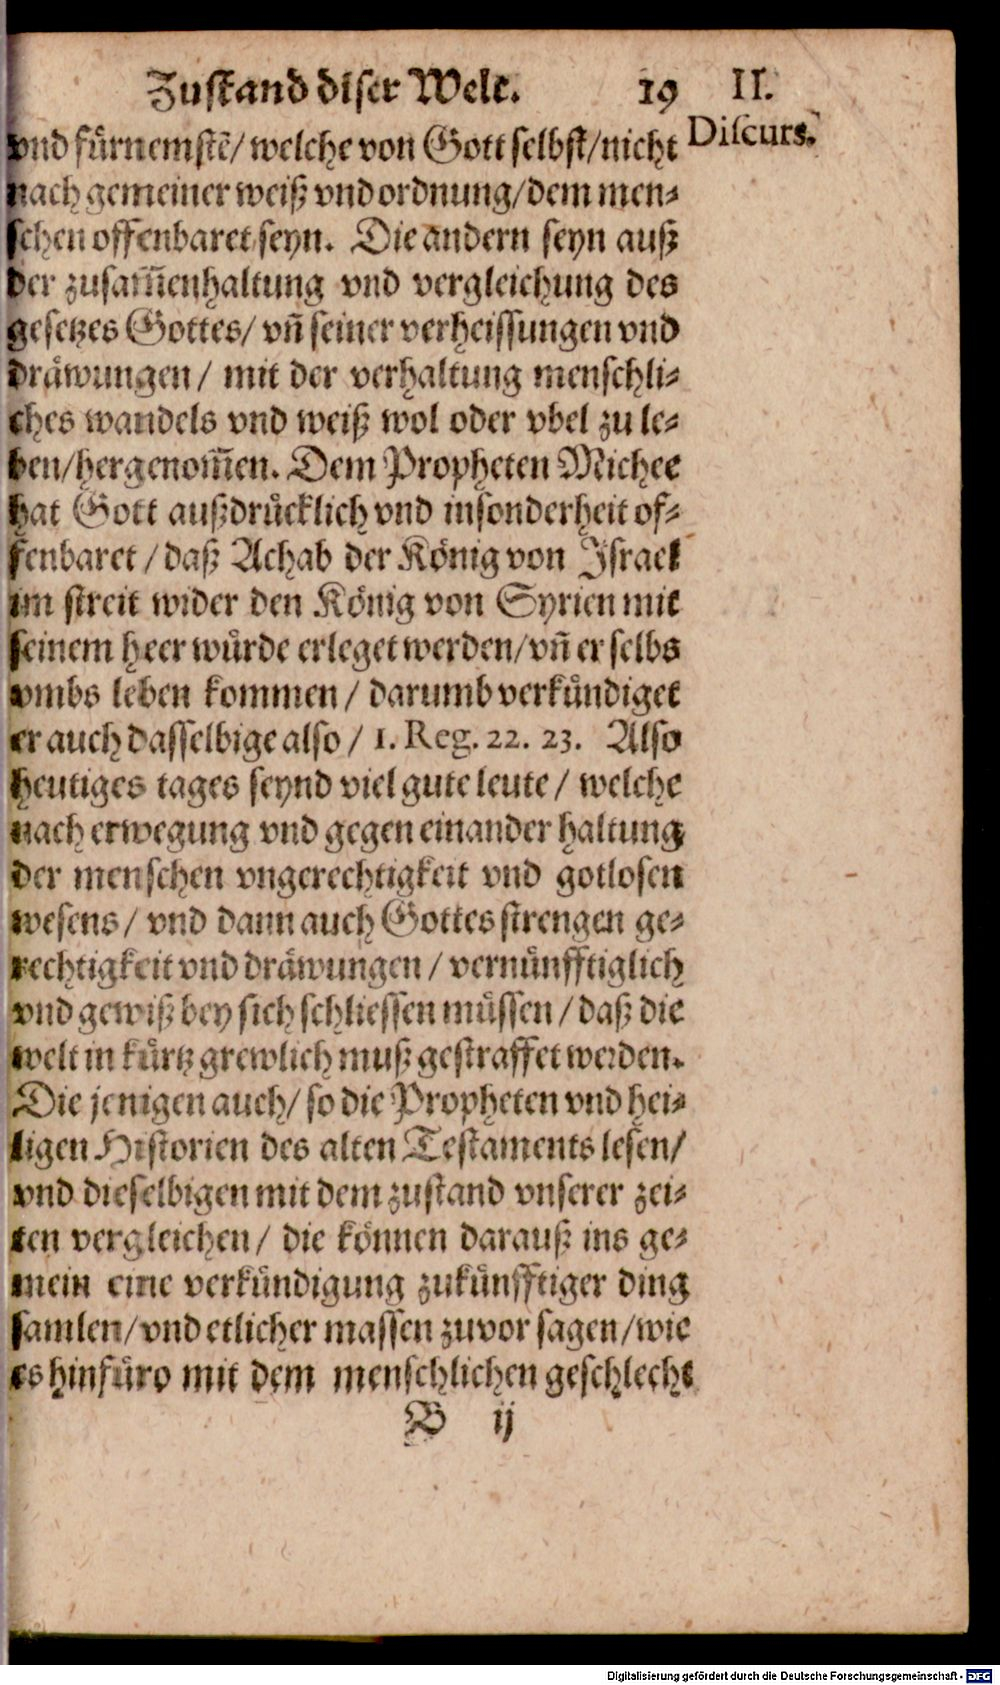 Zustand diser Welt. 19 II.
Discurs.
vnd fürnemstē/ welche von Gott selbst/nicht
nach gemeiner weiß vnd ordnung/dem men-
schen offenbaret seyn. Die andern seyn auß
der zusam̄enhaltung vnd vergleichung des
gesetzes Gottes/ vn̄ seiner verheissungen vnd
dräwungen/ mit der verhaltung menschli-
ches wandels vnd weiß wol oder vbel zu le-
ben/hergenom̄en. Dem Propheten Michee
hat Gott außdrücklich vnd insonderheit of-
fenbaret/daß Achab der König von Israel
im streit wider den König von Syrien mit
seinem heer würde erleget werden/vn̄ er selbs
vmbs leben kommen/ darumb verkündiget
er auch dasselbige also/ 1. Reg. 22. 23. Also
heutiges tages seynd viel gute leute/ welche
nach erwegung vnd gegen einander haltung
der menschen vngerechtigkeit vnd gotlosen
wesens/ vnd dann auch Gottes strengen ge-
rechtigkeit vnd dräwungen/ vernünfftiglich
vnd gewiß bey sich schliessen müssen/daß die
welt in kürtz grewlich muß gestraffet werden.
Die jenigen auch/ so die Propheten vnd hei-
ligen Historien des alten Testaments lesen/
vnd dieselbigen mit dem zustand vnserer zei-
ten vergleichen/ die können darauß ins ge-
mein eine verkündigung zukünfftiger ding
samlen/vnd etlicher massen zuvor sagen/wie
es hinfüro mit dem menschlichen geschlecht
B ij
Digitalisierung gefördert durch die Deutsche Forschungsgemeinschaft - DFG